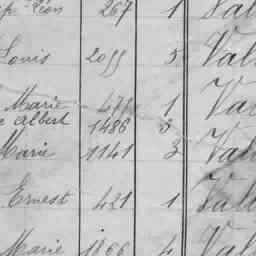 Léon 267 1 Val
Louis 2099 5 Val
Marie 477 1 Val
Albert 1486 3
Marie 1141 3 Val
Ernest 421 1 Val
Marie 1866 4 Val